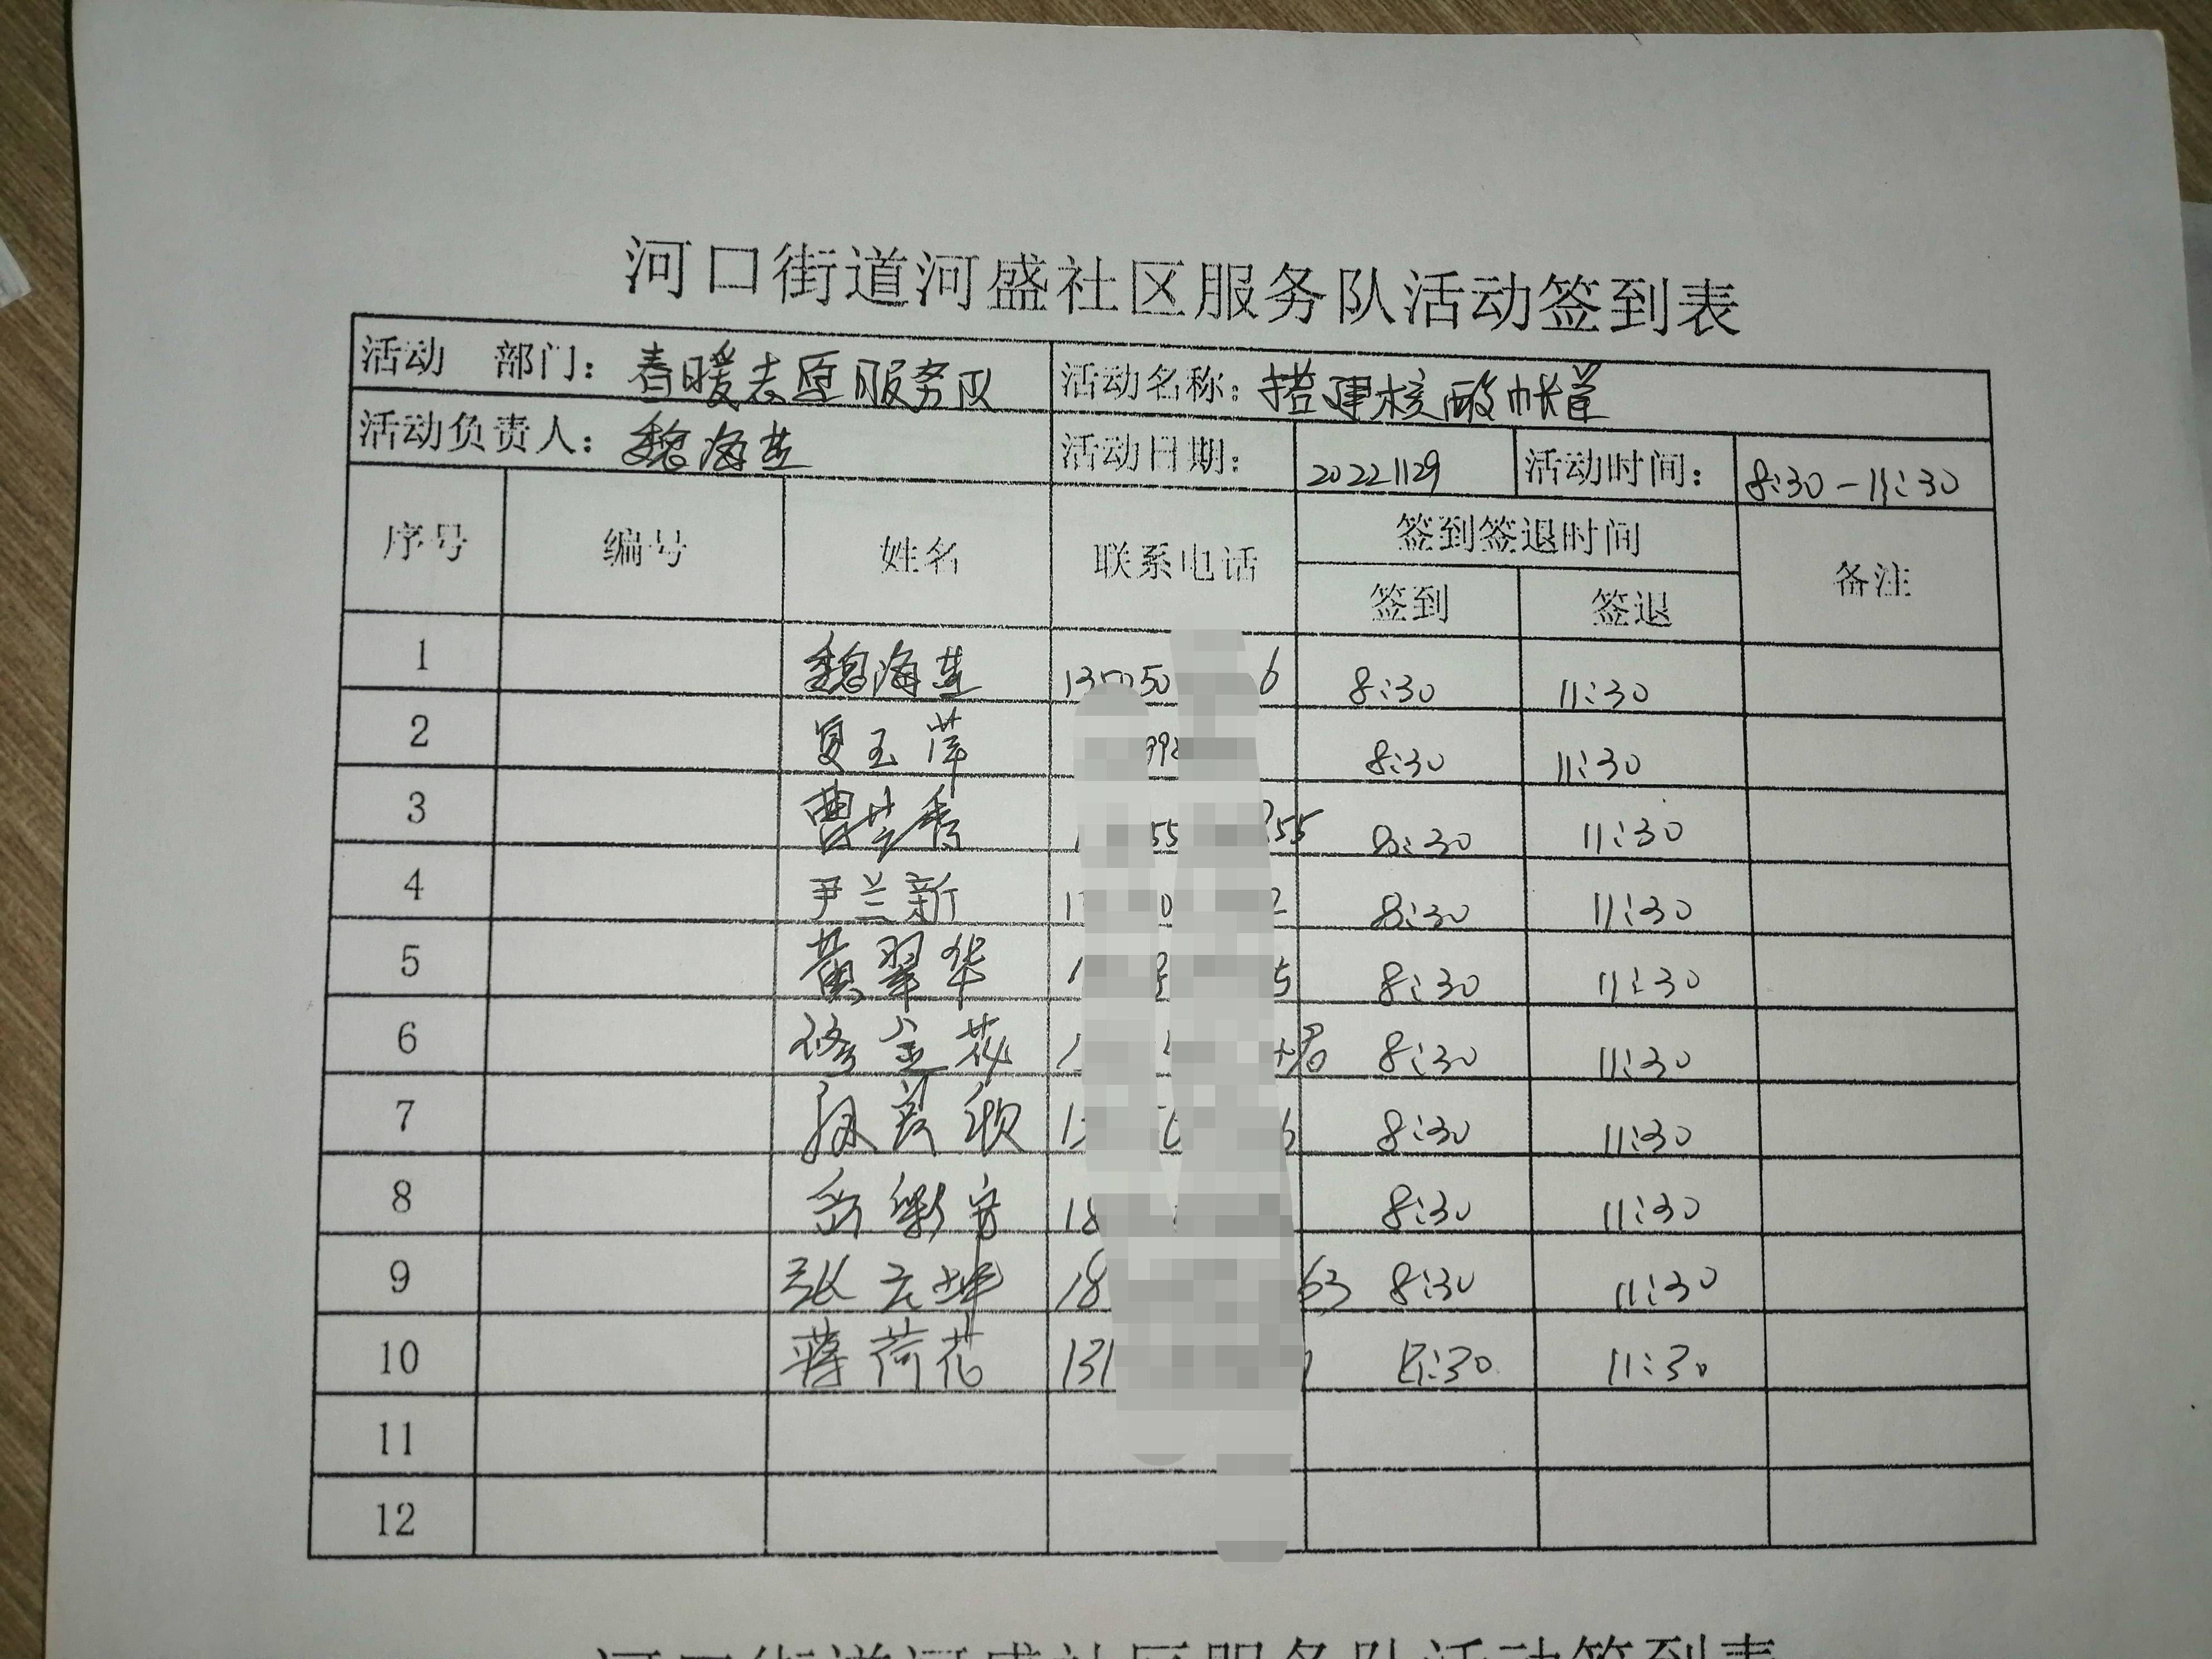 河口街道河盛社区服务队活动签到表
活动 部门：春暖志愿服务队 活动名称：搭建核酸帐篷
活动负责人：魏海燕 活动日期： 20221129 活动时间： 8:30-11:30
序号 编号 姓名 联系电话 签到签退时间 备注
签到 签退
1 魏海燕 6 8:30 11:30
2 夏玉萍 8:30 11:30
3 曹芝秀 55 255 8:30 11:30
4 尹兰新 2 8:30 11:30
5 黄翠华 5 8:30 11:30
6 修金花 8:30 11:30
7 8:30 11:30
8 岳彩方 18 8:30 11:30
9 张云坤 18 63 8:30 11:30
10 蒋荷花 131 8:30 11:30
11
12
河口街道河盛社区服务队活动签到表